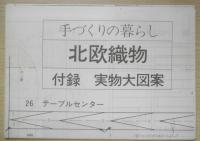 手づくりの暮らし
北欧織物
付録 実物大図案
26 テーブルセンター